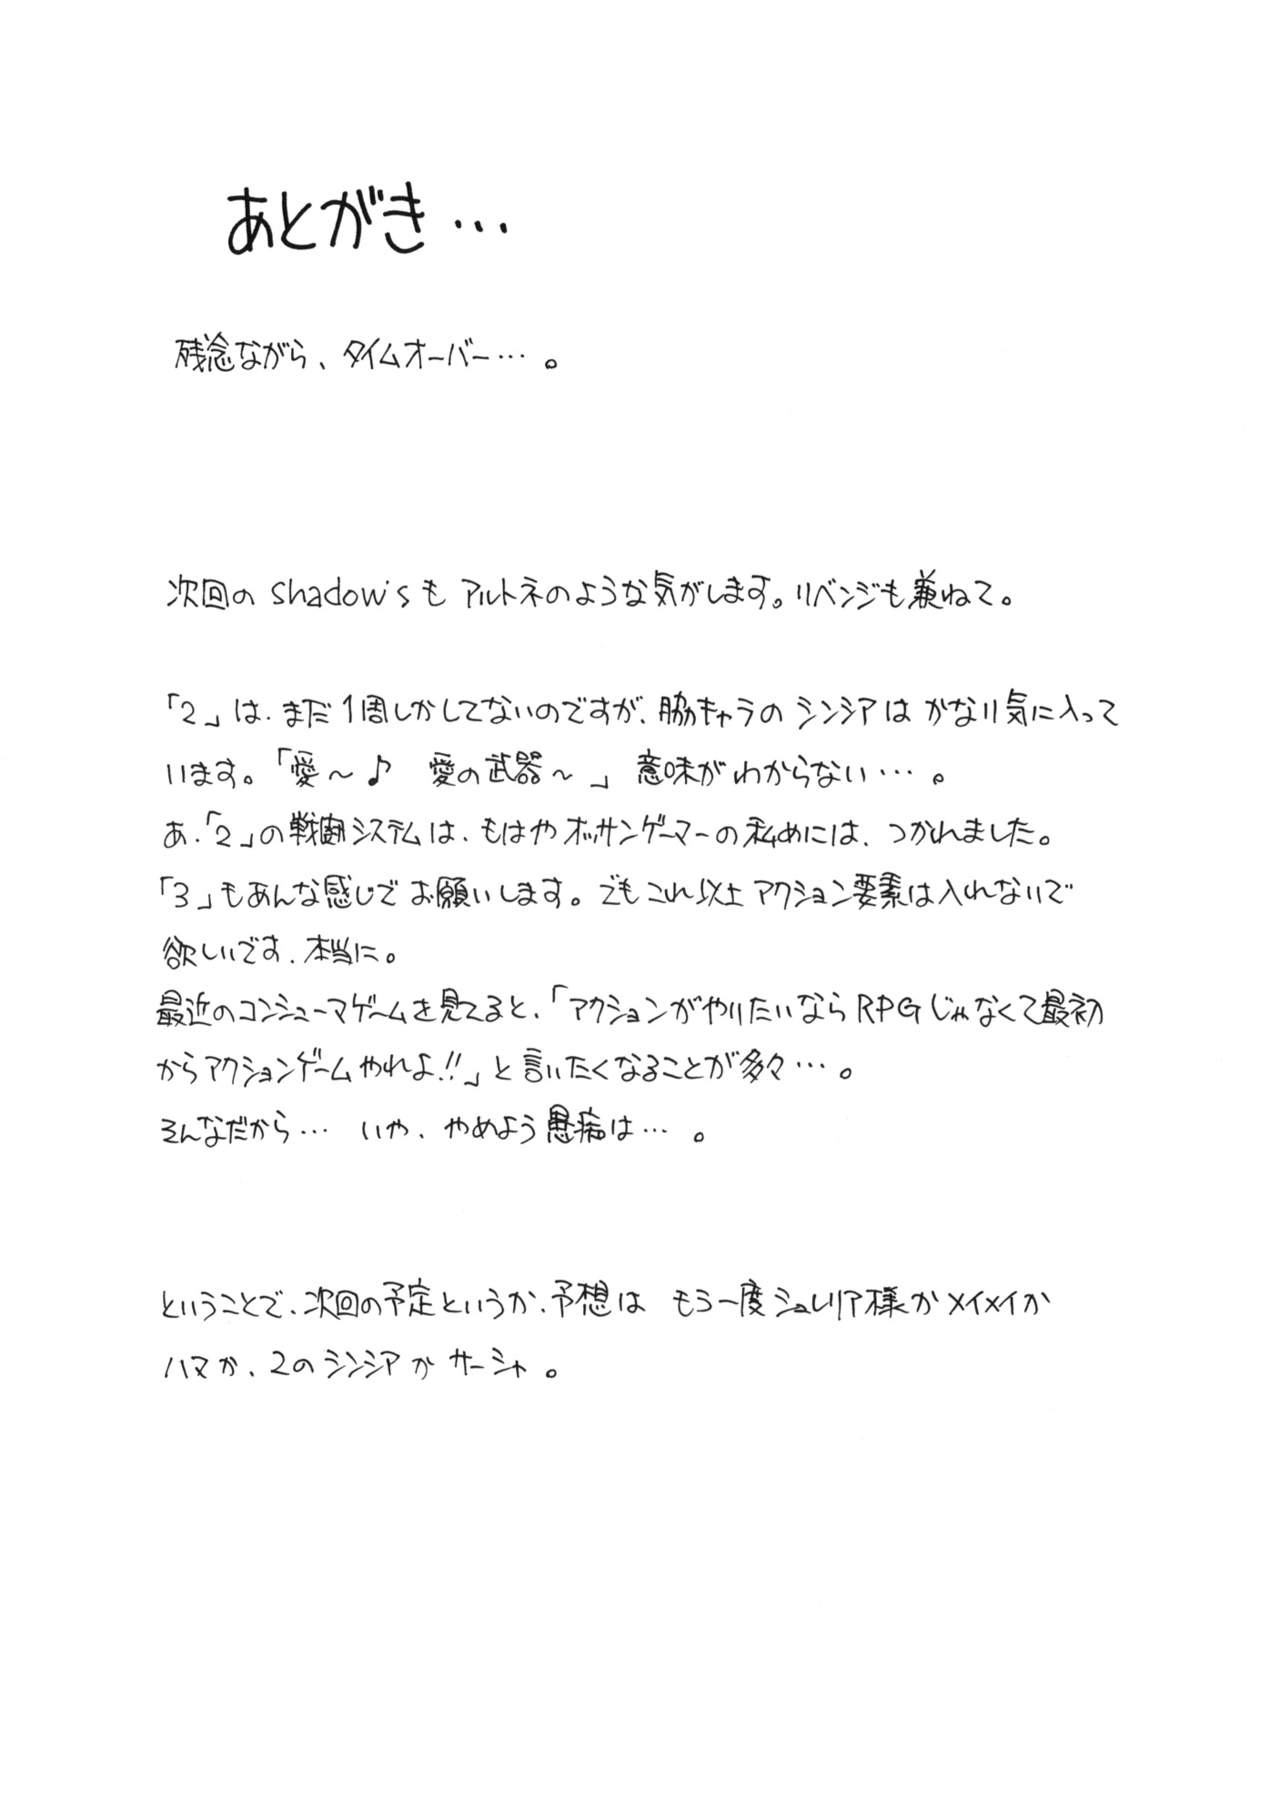 あとがき…
残念ながら、タイムオーバー…。
次回のshadow'sもアルトネのような気がします。リベンジも兼ねて。
「2」は、まだ1周しかしてないのですが、脇キャラのシンシアはかなり気に入って
います。「愛～♪　愛の武器～」意味がわからない…。
あ、「2」の戦闘システムは、もはやオッサンゲーマーの私めには、つかれました。
「3」もあんな感じでお願いします。でもこれ以上アクション要素は入れないで
欲しいです、本当に。
最近のコンシューマゲームを見てると、「アクションがやりたいならRPGじゃなくて最初
からアクションゲームやれよ!!」と言いたくなることが多々…。
そんなだから…　いや、やめよう愚痴は…。
ということで、次回の予定というか、予想は　もう一度シュレリア様かメイメイか
ハマか、2のシンシアかサーシャ。